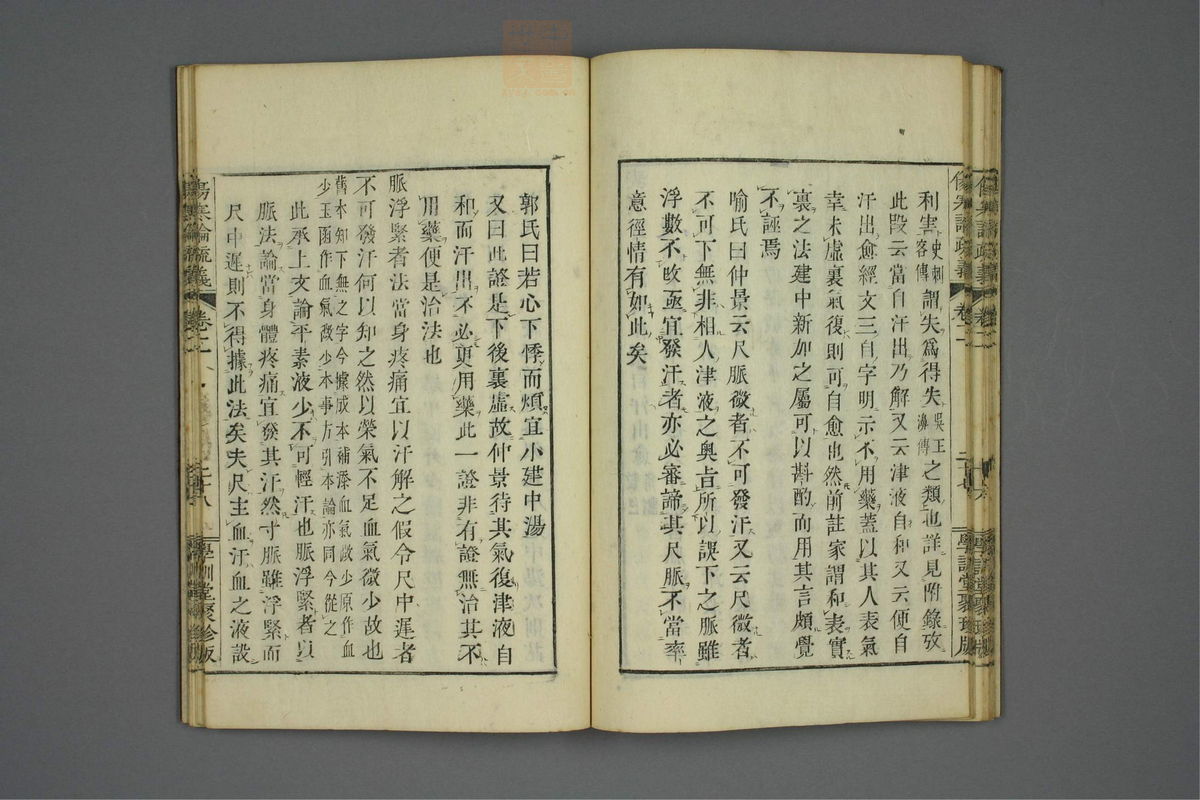 利害史刺客傳謂失爲得失吳王濞傳之類也詳見附錄攷
此段云當自汗出乃解又云津液自和又云便自
汗出愈經文三自字明示不用藥蓋以其人表氣
幸未虛裏氣復則可自愈也然前註家謂和表實
裏之法建中新加之屬可以斟酌而用其言頗覺
不誣焉
喻氏曰仲景云尺脈微者不可發汗又云尺微者
不可下無非相人津液之奧旨所以誤下之脈雖
浮數不改亟宜發汗者亦必審諦其尺脈不當率
意徑情有如此矣
郭氏曰若心下悸而煩宜小建中湯
又曰此證是下後裏虛故仲景待其氣復津液自
和而汗出不必更用藥此一證非有證無治其不
用藥便是治法也
脈浮緊者法當身疼痛宜以汗解之假令尺中遲者
不可發汗何以知之然以榮氣不足血氣微少故也
舊本知下無之字今據成本補添血氣微少原作血
少玉函作血氣微少本事方引本論亦同今從之
此承上文論平素液少不可輕汗也脈浮緊者以
脈法論當身體疼痛宜發其汗然寸脈雖浮緊而
尺中遲則不得據此法矣夫尺主血汗血之液設
傷寒論疏義 卷二 二十八 學訓堂聚珍版